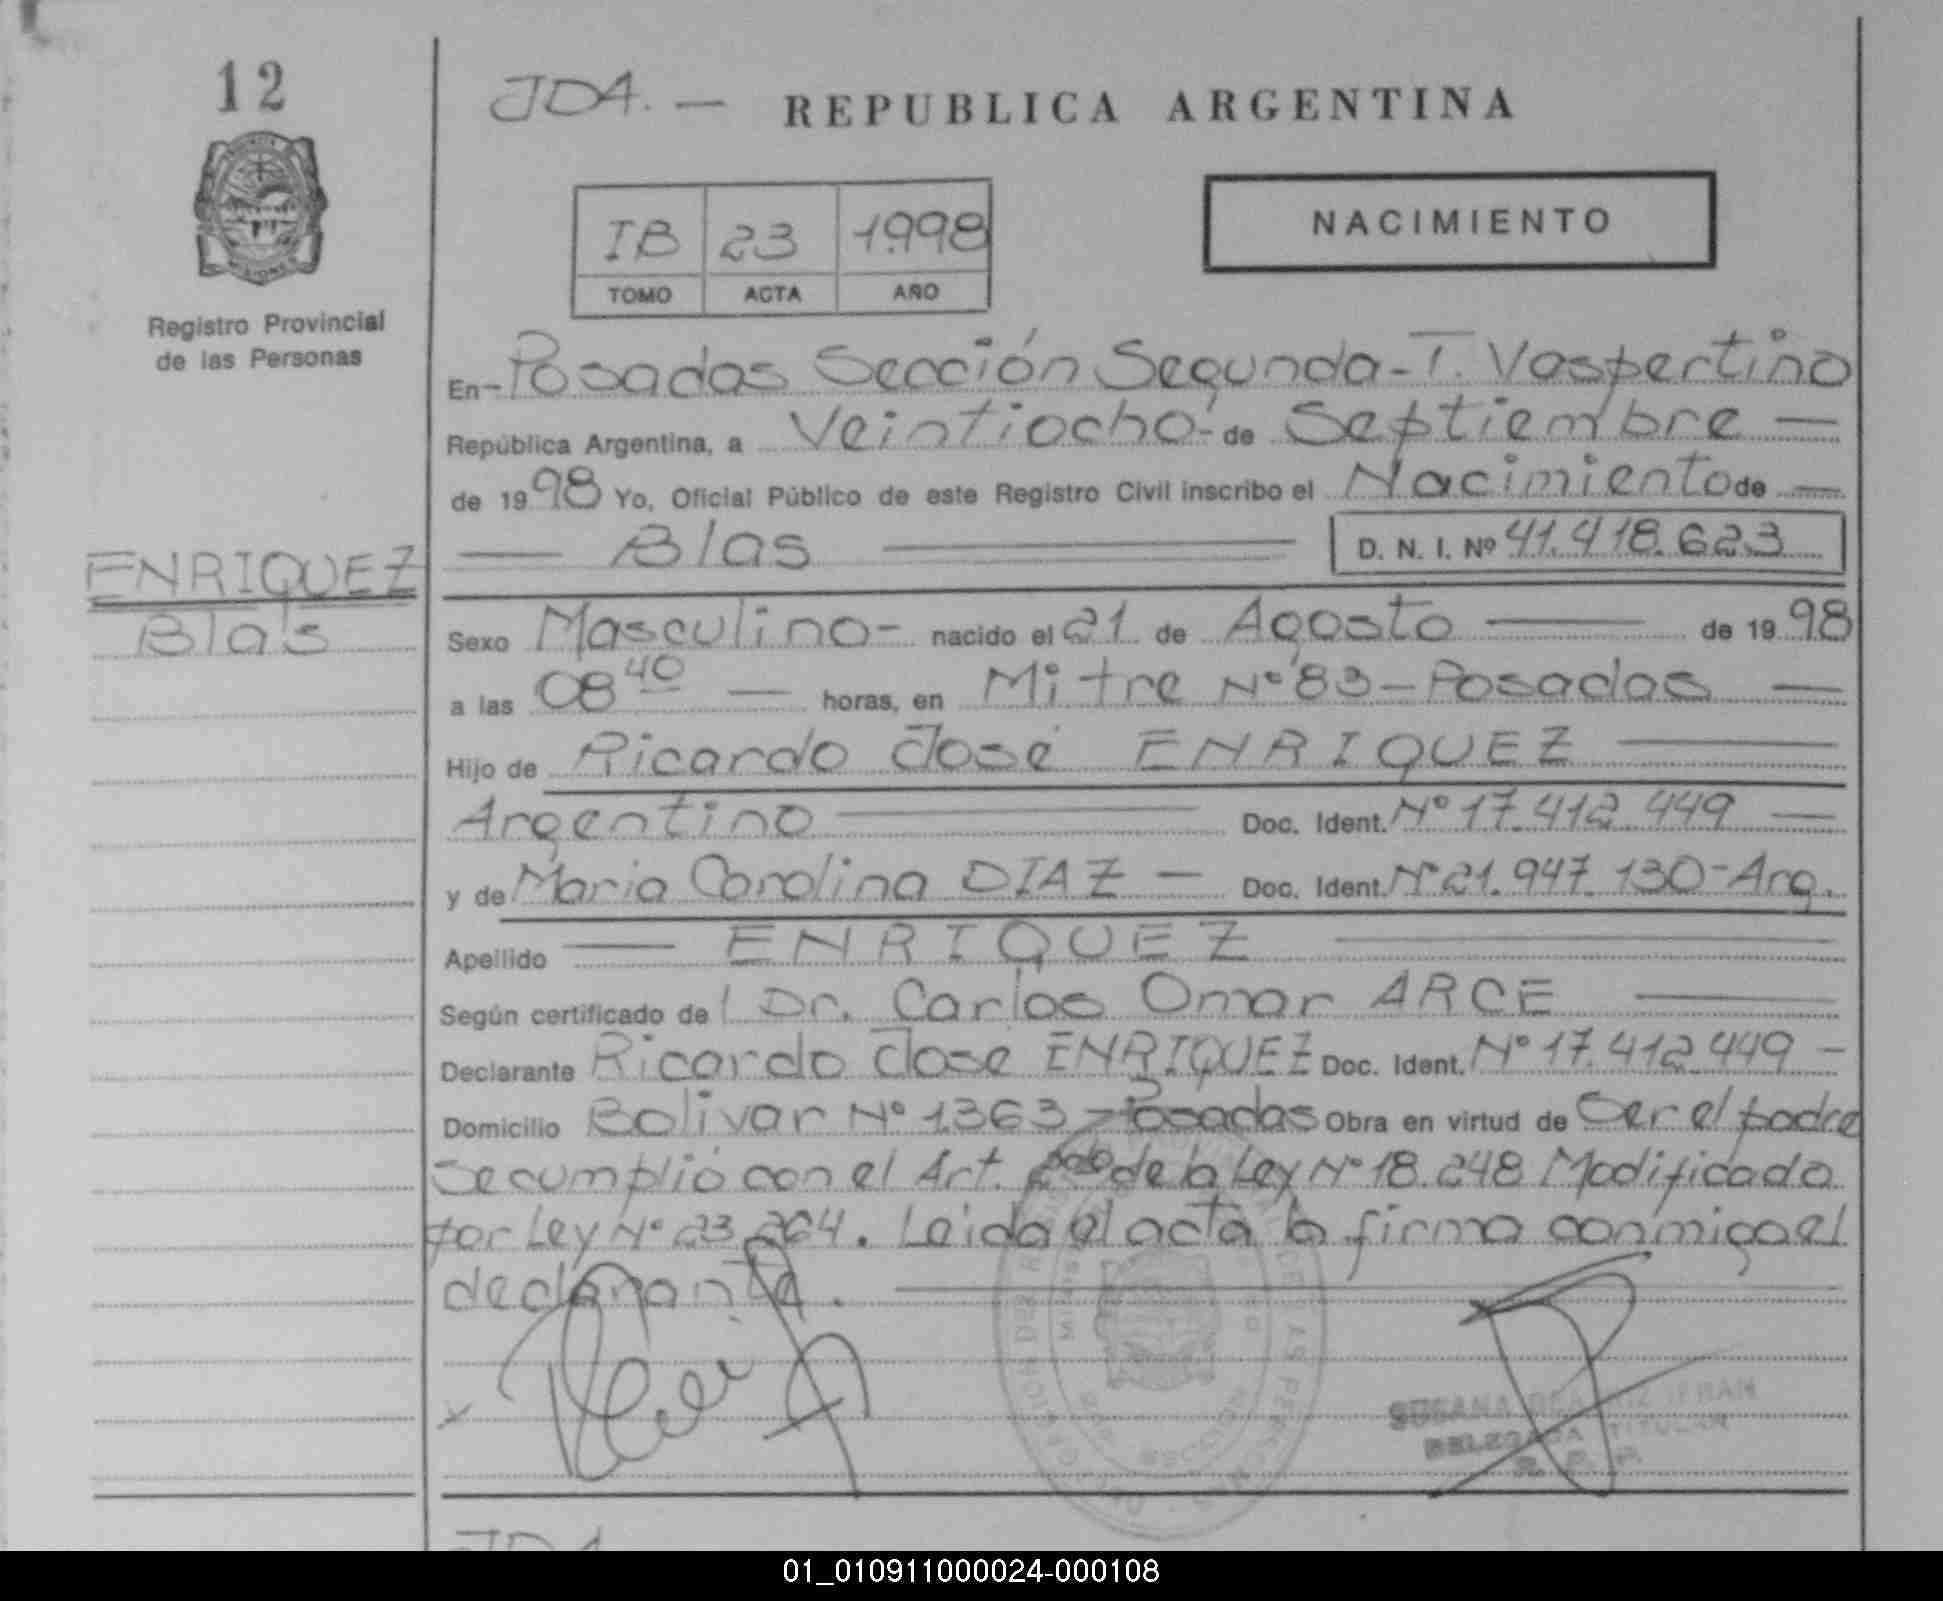 12
JDA. — REPUBLICA ARGENTINA
IB 23 1998
TOMO ACTA AÑO
NACIMIENTO
Registro Provincial
de las Personas
En - Posadas Sección Segunda - T. Vaspertino
República Argentina, a Veintiocho - de Septiembre —
de 1998 Yo, Oficial Público de este Registro Civil inscribo el Nacimiento de —
— Blas — D. N. I. Nº 41.418.623
ENRIQUEZ
Blas
Sexo Masculino - nacido el 21 de Agosto — de 1998
a las 08 40 — horas, en Mitre Nº 83 - Posadas —
Hijo de Ricardo José ENRIQUEZ —
Argentino — Doc. Ident. Nº 17.412.449 —
y de Maria Carolina DIAZ — Doc. Ident. Nº 21.947.130 - Arg.
Apellido — ENRIQUEZ —
Según certificado del Dr. Carlos Omar ARCE —
Declarante Ricardo José ENRIQUEZ Doc. Ident. Nº 17.412.449 —
Domicilio Bolivar Nº 1363 - Posadas Obra en virtud de Ser el padre
Se cumplió con el Art. de la Ley Nº 18.248 Modificada
por Ley Nº 23.264. Leida el acta la firma conmigo el
declarante. —
SUSANA BEATRIZ IFRAN
DELEGADA TITULAR
JDA
01_010911000024-000108